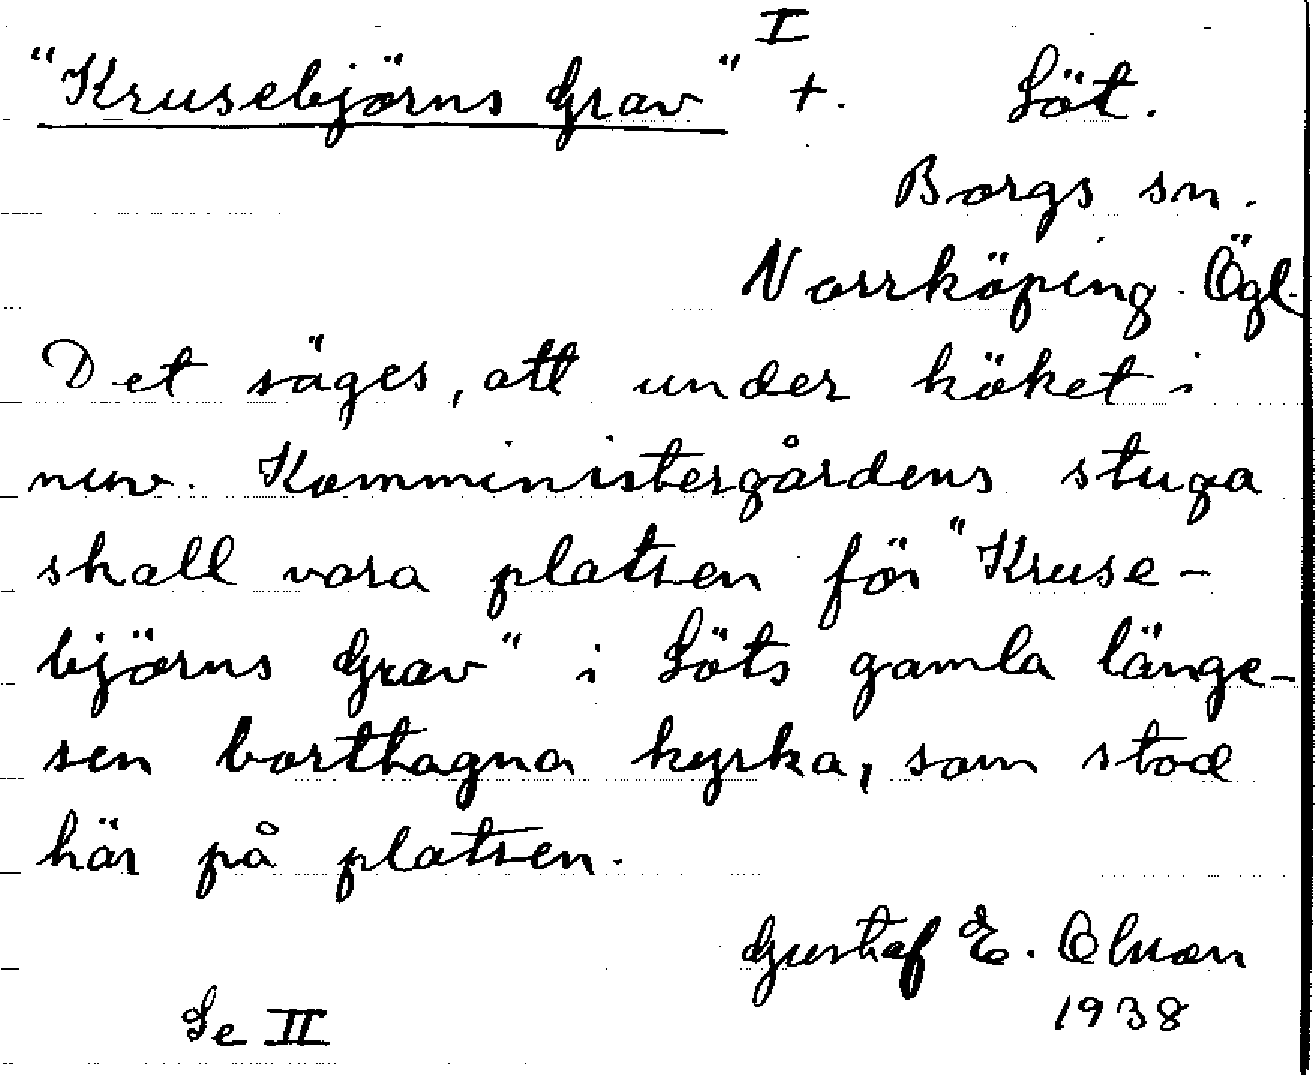 I
"Krusebjörns Grav" +. Löt.
Borgs sn.
Norrköping. Ögl.
Det säges, att under köket i
nuv. Komministergårdens stuga
skall vara platsen för "Kruse-
björns Grav" i Löts gamla länge-
sen borttagna kyrka, som stod
här på platsen.
Gustaf E. Olsson
1938
Se II